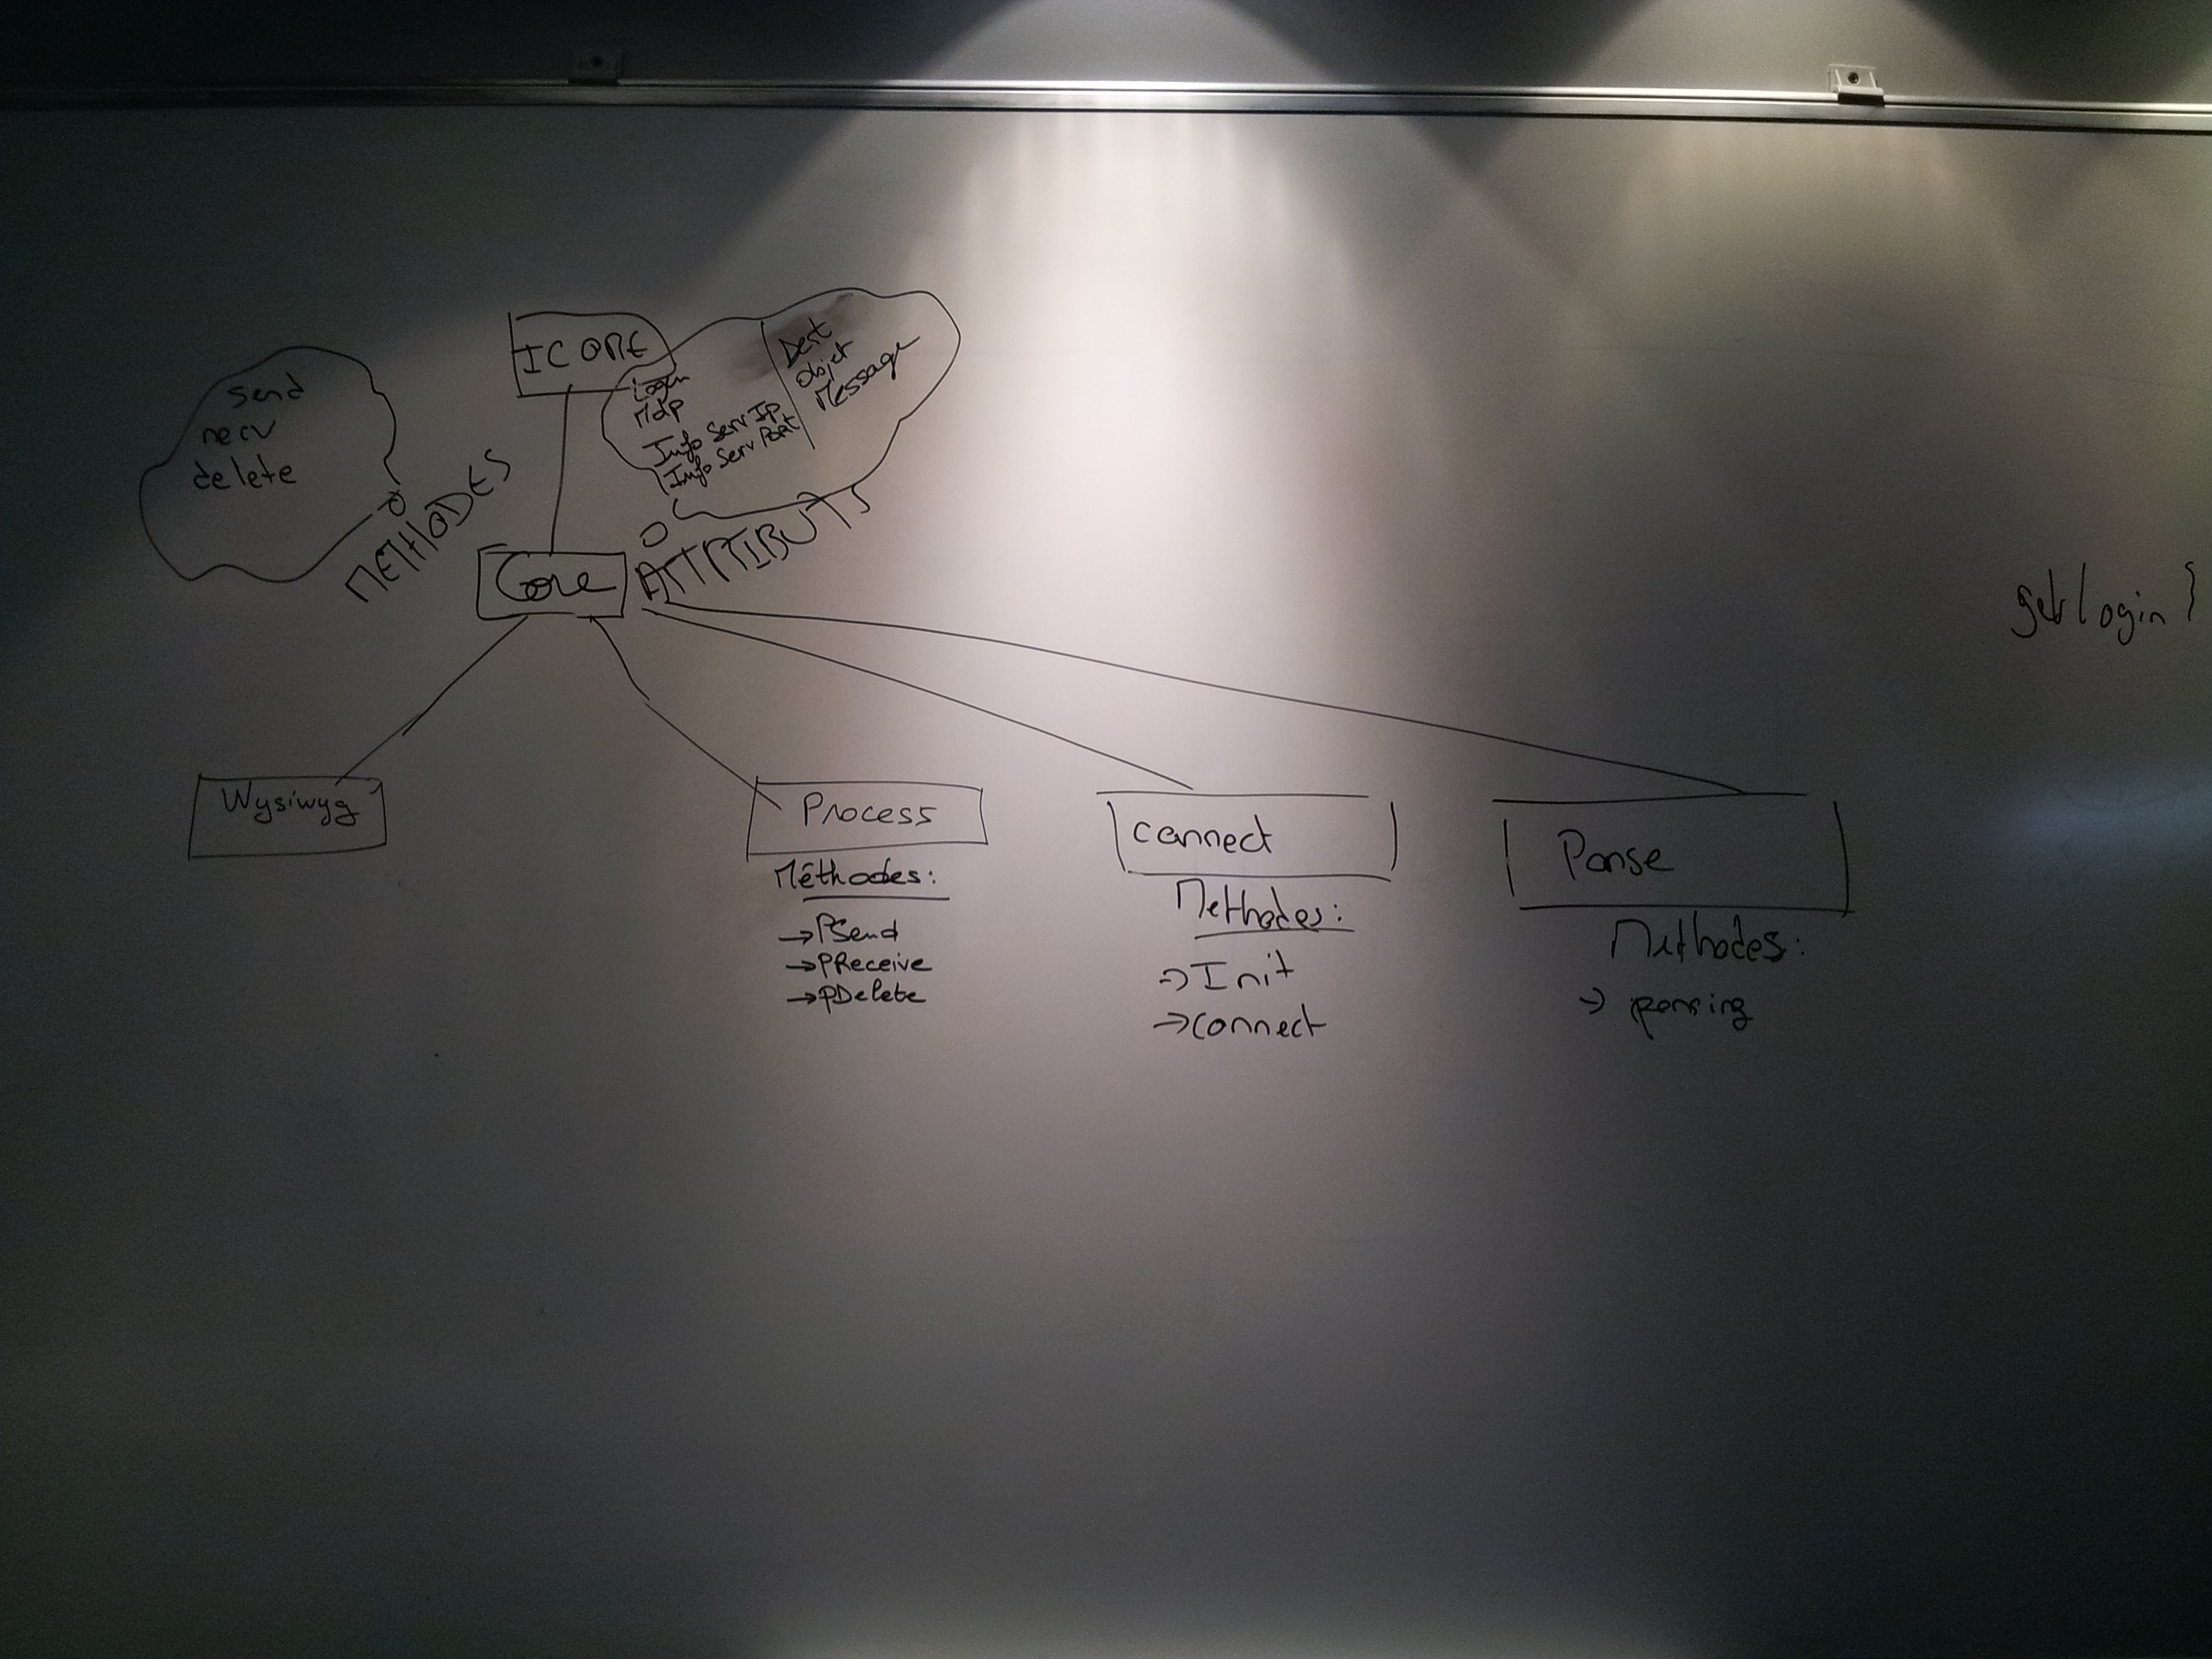 ICORE
send
recv
delete
METHODES
Login
Mdp
Info Serv Ip
Info Serv Port
Dest
Objet
Message
ATTRIBUTS
Core
getLogin }
Wysiwyg
Process
Méthodes:
→ PSend
→ PReceive
→ pDelete
connect
Methodes:
→ Init
→ connect
Parse
Methodes:
→ parsing